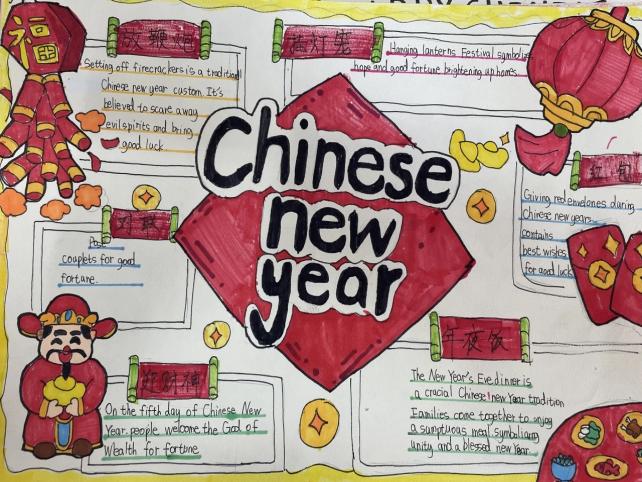 福
放鞭炮
Setting off firecrackers is a traditional
Chinese new year custom. It's
believed to scare away
evil spirits and bring
good luck
挂灯笼
Hanging lanterns Festival symbolize
hope and good fortune brightening up homes.
Chinese
new
year
Giving red envelopes during
Chinese new years
contains
best wishes
for good luck
couplets for good
fortune.
迎财神
On the fifth day of Chinese New
Year people welcome the God of
Wealth for fortune
年夜饭
The New Year's Eve dinner is
a crucial Chinese new Year tradition
Families come together to enjoy
a sumptuous meal symbolizing
unity and a blessed new Year